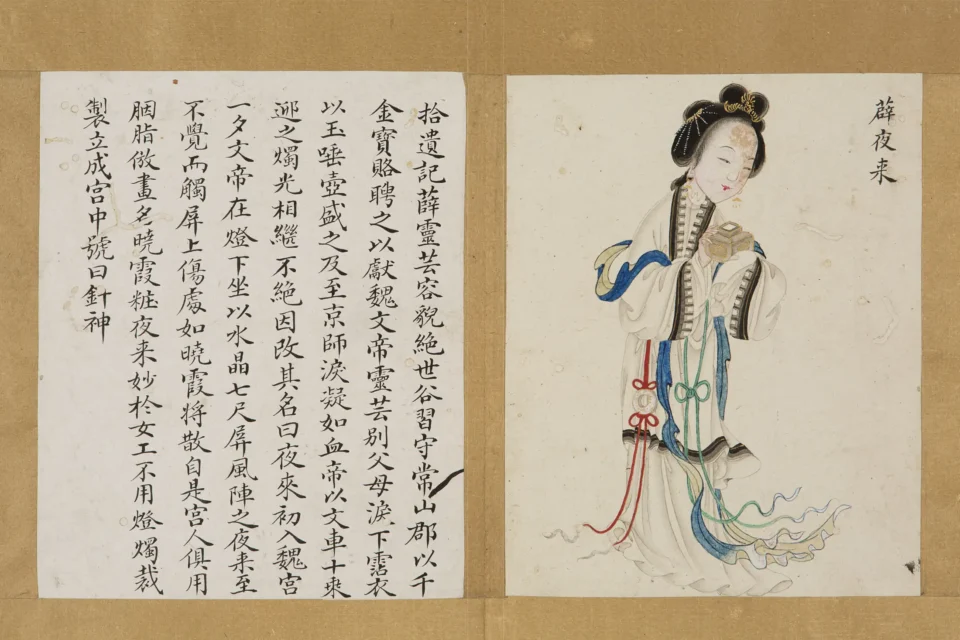 薜夜来
拾遺記薛靈芸容貎絶世谷習守常山郡以千
金寶賂聘之以獻魏文帝靈芸别父母淚下霑衣
以玉唾壺盛之及至京師淚凝如血帝以文車十乘
迎之燭光相繼不絶因改其名曰夜來初入魏宮
一夕文帝在燈下坐以水晶七尺屏風陣之夜来至
不覺而觸屏上傷處如曉霞将散自是宮人俱用
胭脂倣畫名曉霞粧夜来妙於女工不用燈燭裁
製立成宫中號曰針神